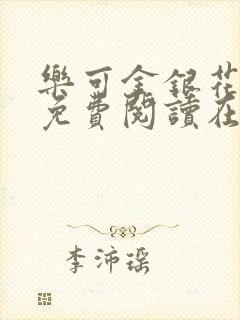 樂可金銀花
免費閱讀在
李沛瑶